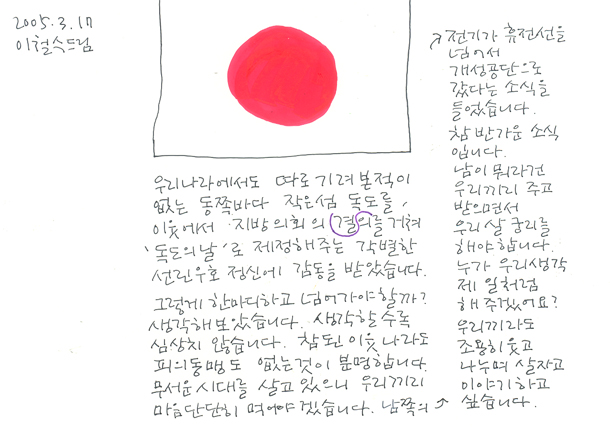 2005.3.17
이철수드림
우리나라에서도 따로 기려 본적이
없는 동쪽바다 작은섬 독도를,
이웃에서 지방의회의 결의를 거쳐
'독도의 날'로 제정해주는 각별한
선린우호 정신에 감동을 받았습니다.
그렇게 한마디하고 넘어가야 할까?
생각해보았습니다. 생각할수록
심상치 않습니다. 참된 이웃나라도
피의동맹도 없는것이 분명합니다.
무서운 시대를 살고 있으니 우리끼리
마음단단히 먹어야겠습니다. 남쪽의
전기가 휴전선을
넘어서
개성공단으로
갔다는 소식을
들었습니다.
참 반가운 소식
입니다.
남이 뭐라건
우리끼리 주고
받으면서
우리 살 궁리를
해야 합니다.
누가 우리생각
제 일처럼
해 주겠어요?
우리끼리라도
조용히 웃고
나누며 살자고
이야기하고
싶습니다.